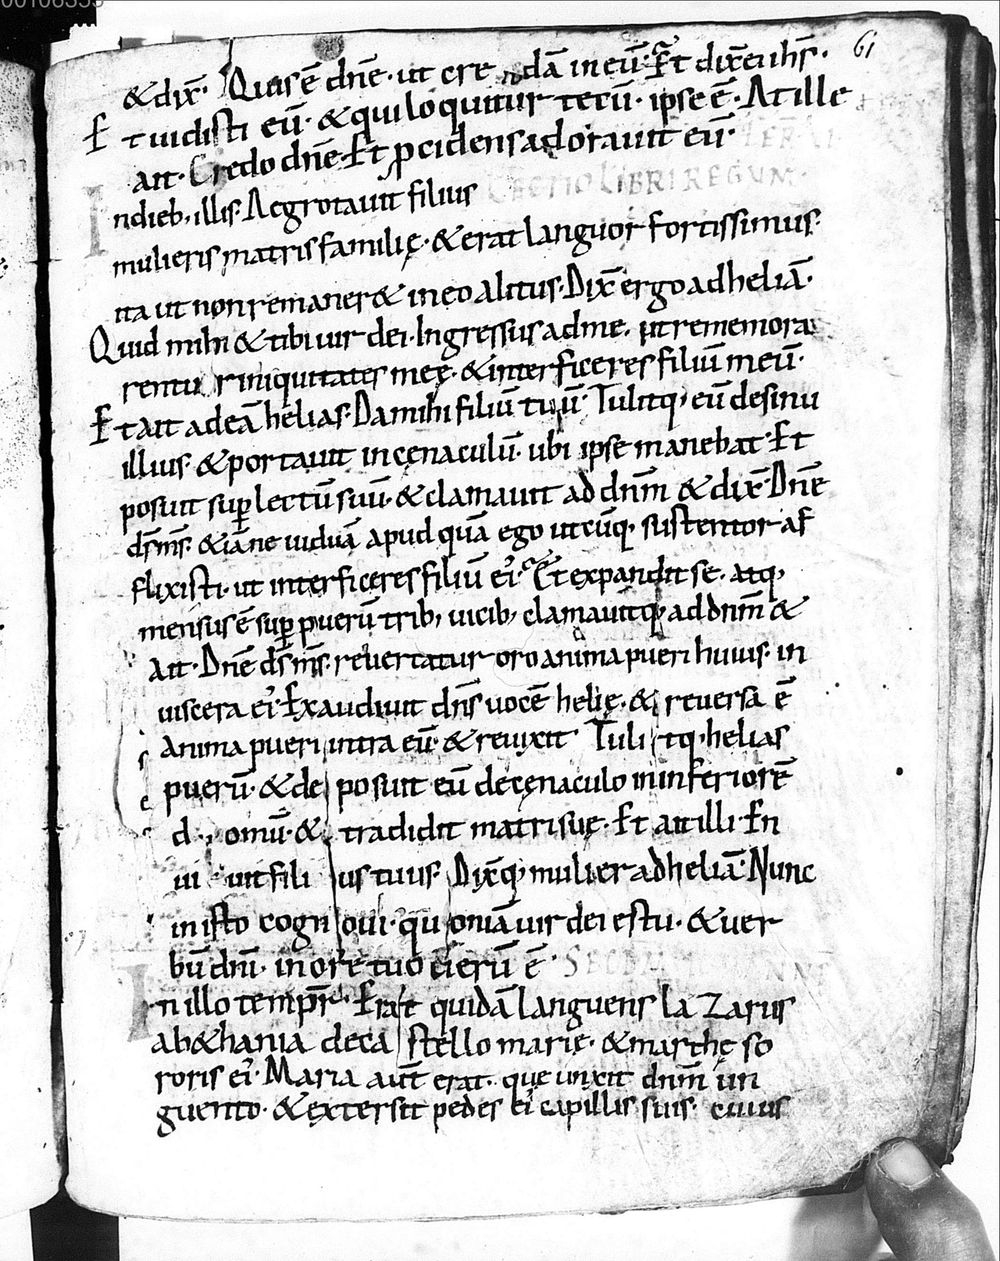 00106355
61
& dix̄. Quis ē dn̄e. ut cre dā in eū. Et dix̄ ei ihs̄.
Et uidisti eū. & qui loquitur tecū. ipse ē. At ille
ait. Credo dn̄e. Et p̱cidens adorauit eū.
LECTIO LIBRI REGUM.
In dieb; illis. Aegrotauit filius
mulieris matris familię. & erat languor fortissimus.
ita ut non remaner& in eo alitus. Dix̄ ergo ad heliā.
Quid mihi & tibi uir dei. Ingressus ad me. ut rememora
rentur iniquitates meę. & interficeres filiū meū.
Et ait ad eā helias. Da mihi filiū tuū. Tulitq; eū de sinu
illius. & portauit in cęnaculū. ubi ipse manebat. Et
posuit sup̱ lectū suū. & clamauit ad dnm̄ & dix̄. Dn̄e
ds̄ ms̄. & iā ne uiduā apud quā ego utcūq; sustentor af
flixisti. ut interficeres filiū ei'. Et expandit se. atq;
mensus ē sup̱ puerū trib; uicib; clamauitq; ad dnm̄ &
ait. Dn̄e ds̄ ms̄. reuertatur oro anima pueri huius. in
uiscera ei'. Exaudiuit dn̄s uocē helię. & reuersa ē
anima pueri intra eū. & reuixit. Tulitq; helias
puerū. & deposuit eū de cęnaculo in inferiorē
domū. & tradidit matri suę. Et ait illi. En
uiuit filius tuus. Dix̄q; mulier ad heliā. Nunc
in isto cognoui. quoniā uir dei es tu. & uer
bū dn̄i. in ore tuo uerū ē. SECDM
In illo tempr̄. Erat quidā languens lazarus
a b&hania de castello marię. & marthę so
roris ei'. Maria aūt erat. que unxit dnm̄ un
guento. & extersit pedes ei' capillis suis. cuius